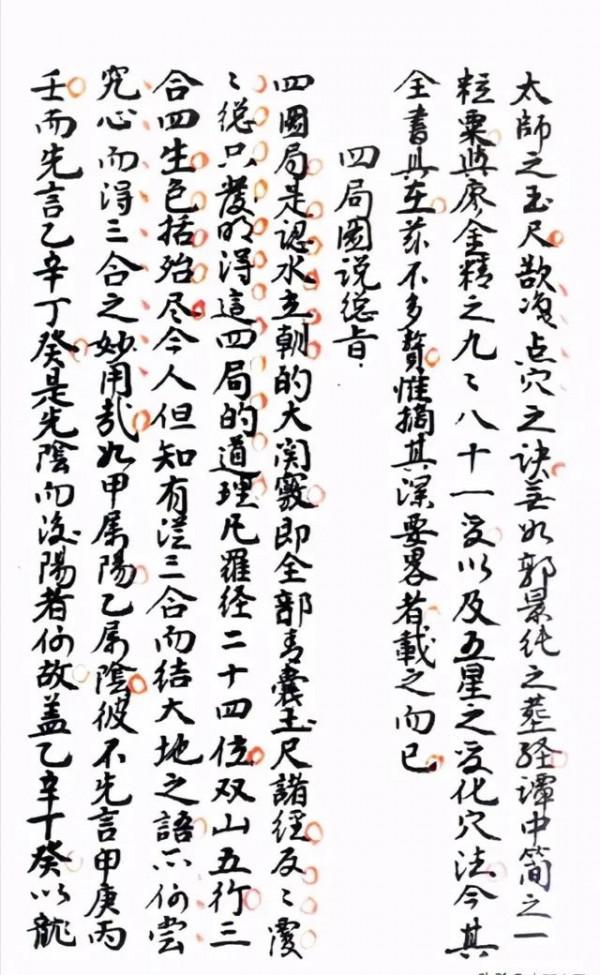 太師之玉尺欲凂点穴之诀無如郭景纯之塟经譚中简之一
粒粟與廖金精之九〻八十一变以及五星之变化穴法今其
全書具在兹不多贅惟摘其深要畧者載之而已
四局圖说緫旨
四圖局是認水立朝的大関竅即全部青囊玉尺諸經反〻覆
〻緫只發明得這四局的道理凡羅经二十四位双山五行三
合四生包括殆尽今人但知有從三合而结大地之語不何尝
究心而得三合之妙用哉如甲属陽乙属陰彼不先言甲庚丙
壬而先言乙辛丁癸是先陰而後陽者何故盖乙辛丁癸以龍